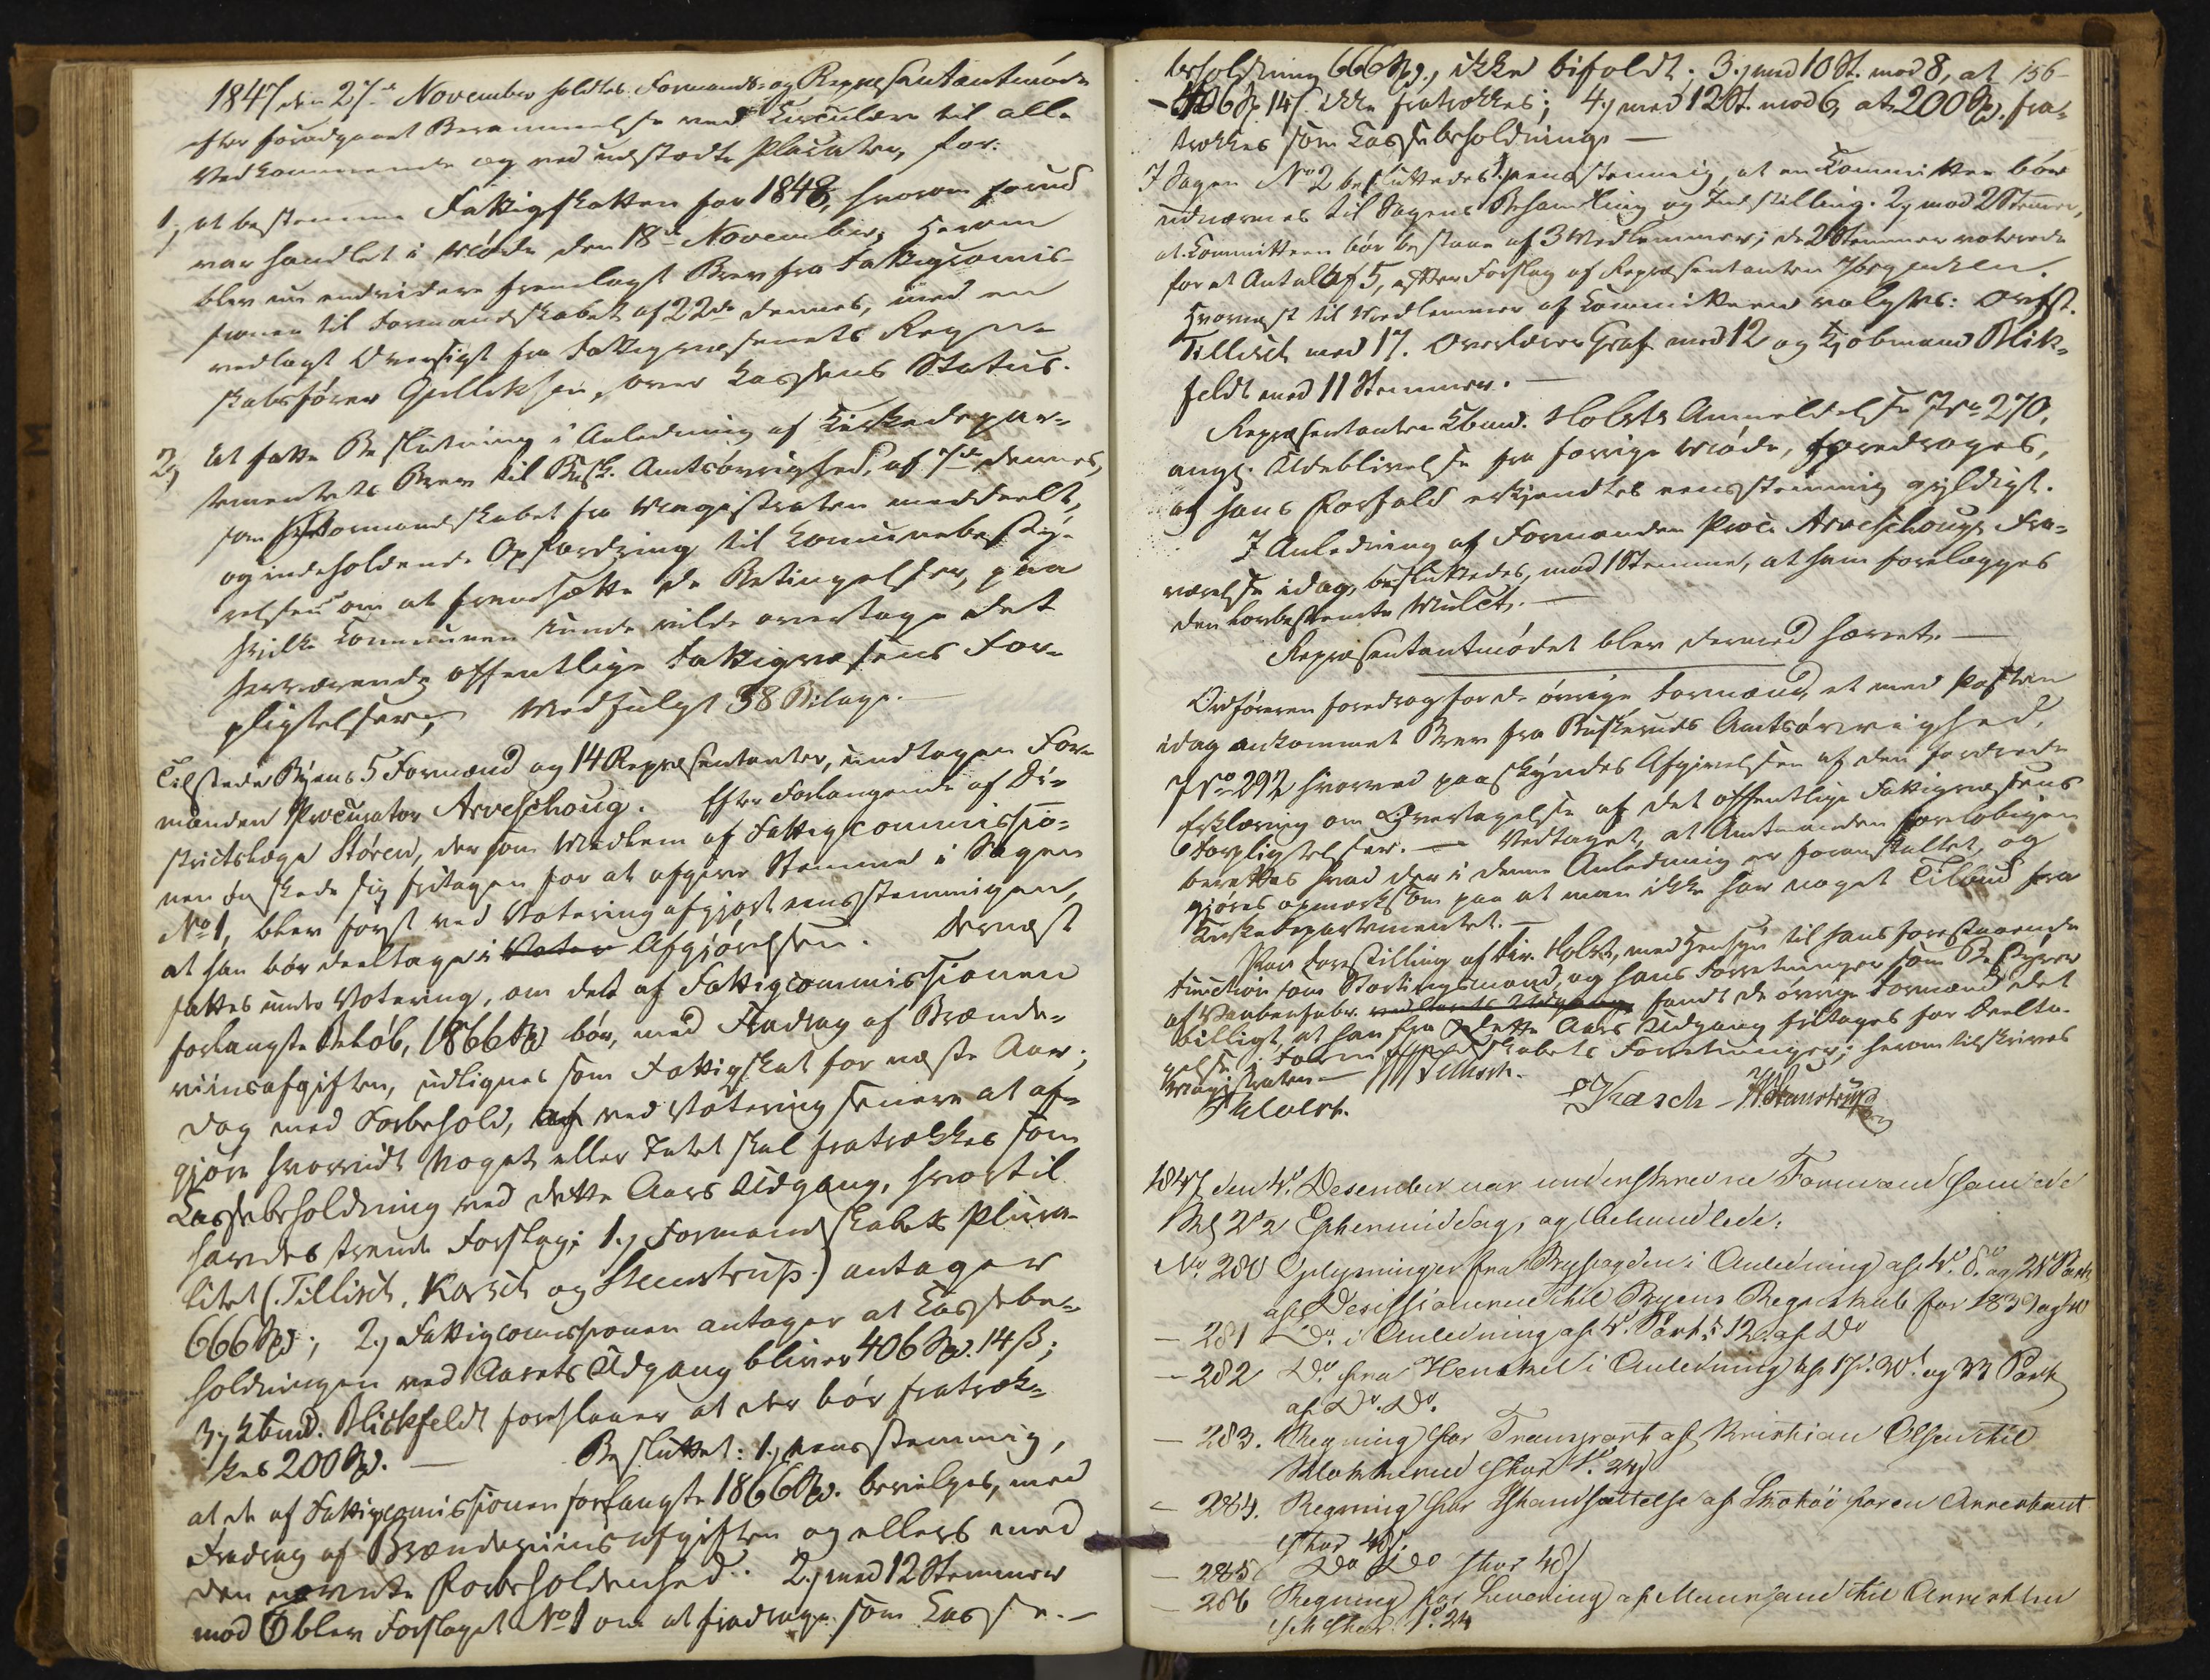 1847 den 27de November holdtes Formands- og Repræsentantmöde
efter foregaaet Berammelse ved Circulære til alle
Vedkommende og ved udstedte Placater, for:
1, at bestemme Fattigskatten for 1848, hvorom forud
var handlet i Möde den 18de November; herom
blev nu endvidere fremlagt Brev fra Fattigcomis-
sionen til Formandskabet af 22de dennes, med en
vedlagt Oversigt fra Fattigvæsenets Regn-
skabsförer Gulliksen, over Kassens Status.
2, At fatte Beslutning i Anledning af Kirkedepar-
tementets Brev til Busk. Amtsövrighed, af 7de dennes,
som Formandskabet fra Magistraten meddeelt,
og indeholdende Opfordring til Communebesty-
relsen om at fremsætte de Betingelser, paa
hvilke Communen kunde ville overtage det
herværende offentlige Fattigvæsens For-
pligtelser; Medfulgt 38 Bilage.
Tilstede Byens 5 Formænd og 14 Repræsentanter, undtagen For-
manden Procurator Arveschoug. Efter Forlangende af Di-
strictslæge Stören, der som Medlem af Fattigcommissio-
nen ønskede sig fritagen for at afgive Stemme i Sagen
No 1, blev först ved Votering afgjort eensstemmigen,
at han bör deeltage i Voter Afgjörelsen. Dernæst
sattes under Votering, om det af Fattigcommissionen
forlangte Belöb, 1866 Spd bör, med Fradrag af Brænde-
viinsafgiften, udlignes som Fattigskat for næste Aar;
dog med Forbehold, ved Votering senere at af-
gjöre hvorvidt Noget eller Intet skal fratrækkes som
Cassebeholdning ved dette Aars Udgang, hvortil
havdes trende Forslag; 1, Formandskabets Plura-
litet (Tillisch, Korsch og Steenstrup) antager
666 Spd; 2, Fattigcomissionen antager at Cassebe-
holdningen ved Aarets Udgang bliver 406 Spd. 14 ß;
3, Kbmd. Blickfeldt foreslaaer at der bör fratræk-
kes 200 Spd. — Besluttet: 1, eensstemmig,
at de af Fattigcomissionen forlangte 1866 Spd. bevilges, med
Fradrag af Brændeviinsafgiften og ellers med
den nævnte Forbeholdenhed. 2, med 12 Stemmer
mod 6 blev Forslaget No 1 om at fradrage som Casse-
beholdning 666 Spd., ikke bifaldt. 3, med 10 St. mod 8, at 156
- 406 Sp. 14 ß ikke fratrækkes; 4, med 12 St. mod 6, at 200 Spd. fra-
trækkes som Cassebeholdning. —
I Sagen No 2 besluttedes 1, eensstemmig, at en Committee bör
udnævnes til Sagens Behandling og Indstilling. 2, mod 2 Stemmer,
at Committeen bör bestaae af 3 Medlemmer; de 2 Stemmer voterede
for et Antal af 5, efter Forslag af Repræsentanten Jörgensen.
Hvornæst til Medlemmer af Committeen valgtes:
Tillisch med 17. Overlærer Graf med 12 og Kjöbmand Blik-
feldt med 11 Stemmer. —
Repræsentanten Kbmd. Holsts Anmeldelse J No 270,
angl. Udeblivelse fra forrige Möde, foredroges,
og hans Forfald erkjendtes eensstemmig gyldigt.
I Anledning af Formanden Proc. Arveschougs Fra-
værelse idag, besluttedes, mod 1 Stemme, at ham forelægges
den lovbestemte Mulct. —
Repræsentantmödet blev dermed hævet. —
Ordföreren foredrog for de övrige Formænd, et med Posten
idag ankommet Brev fra Buskeruds Amtsövrighed,
J No 292 hvorved paaskyndes Afgivelsen af den fordrede
Erklæring om Overtagelse af det offentlige Fattigvæsens
Forpligtelser. — Vedtaget, at Amtmanden forelöbigen
berettes hvad der i denne Anledning er foranstaltet, og
gjöres opmærksom paa at man ikke har noget Tilbud fra
Kirkedepartementet. —
Paa Forestilling af Dir. Holst, med Hensyn til hans forestaaende
Function som Storthingsmand, og hans Forretninger som Bestyrer
af Vaabenfabr. fandt de övrige Formænd det
billigt, at han fra dette Aars Udgang fritages for Deelta-
gelse i Formandskabets Forretninger; herom tilskrives
Magistraten — Tillisch.
Holst. Korsch - Steenstrup
1847 den 4de Desember var undertegnede Formænd samlede
Kl 2½ Eftermiddag, og behandlede:
No. 280 Oplysninger fra Byfogden i Anledning af 4de 8de og 21 Post
af Desissionerne til Byens Regnskab for 1839 og 40
— 281 Do. i Anledning af 4. Post § 12. af Do
— 282 Do. fra Henskel i Anledning af 17d. 30t. og 33 Post
af Do. Do.
— 283. Regning for Transport af Kristian Olsen til
Klokkerud stor 1. 24 ß
— 284. Regning for Istandsættelse af for en Arrestant
stor 48 ß.
— 285 Do Do stor 48 ß
— 286 Regning for Levering af til Arresten
stor 1. 24